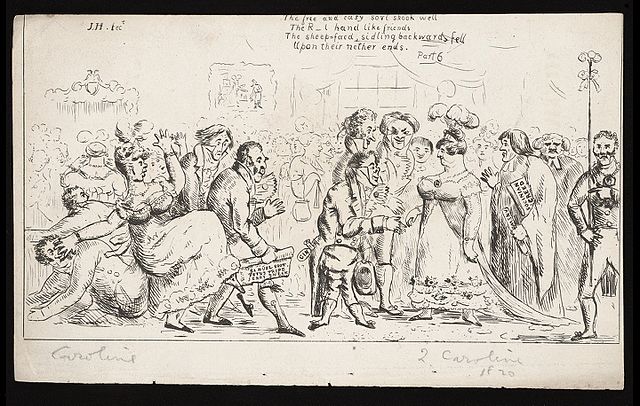 J.H. fec^t
The free and eazy sort shook well
The R_l hand like friends
The sheep-fac'd, sidling backwards, fell
Upon their nether ends.
Part 6
GIN
Caroline
2 Caroline
1820